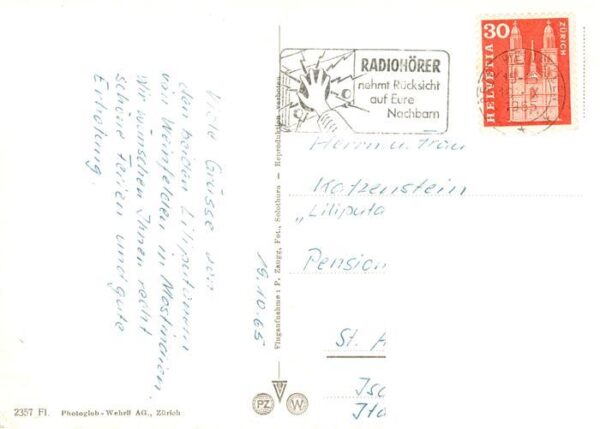 Viele Grüsse von
den beiden Liliputanern
von Weinfelden in Mostindien.
Wir wünschen Ihnen recht
schöne Ferien und gute
Erholung.
19.10.65
Fluganfnahme: P. Zaugg, Fot., Solothurn - Reproduktion verboten
RADIOHÖRER
nehmt Rücksicht
auf Eure
Nachbarn
30
HELVETIA
ZÜRICH
1965
Herrn u. Frau
Katzenstein
„Liliputa
Pension
St.
Ita
PZ
W
2357 Fl. Photoglob-Wehrli AG., Zürich